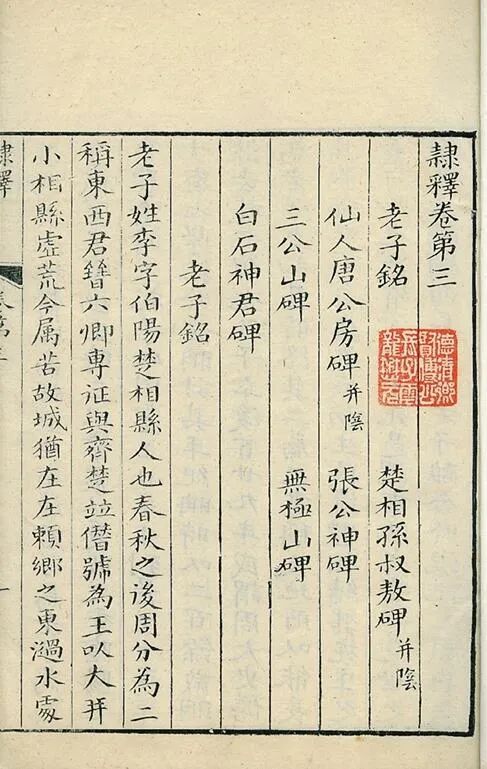 隸釋卷第三
老子銘 楚相孫叔敖碑 并陰
仙人唐公房碑 并陰 張公神碑
三公山碑 無極山碑
白石神君碑
老子銘
老子姓李字伯陽楚相縣人也春秋之後周分為二
稱東西君晉六卿専征與齊楚竝僭號為王㕥大并
小相縣虛荒今属苦故城猶在在賴鄉之東濄水處
隸釋
卷第三